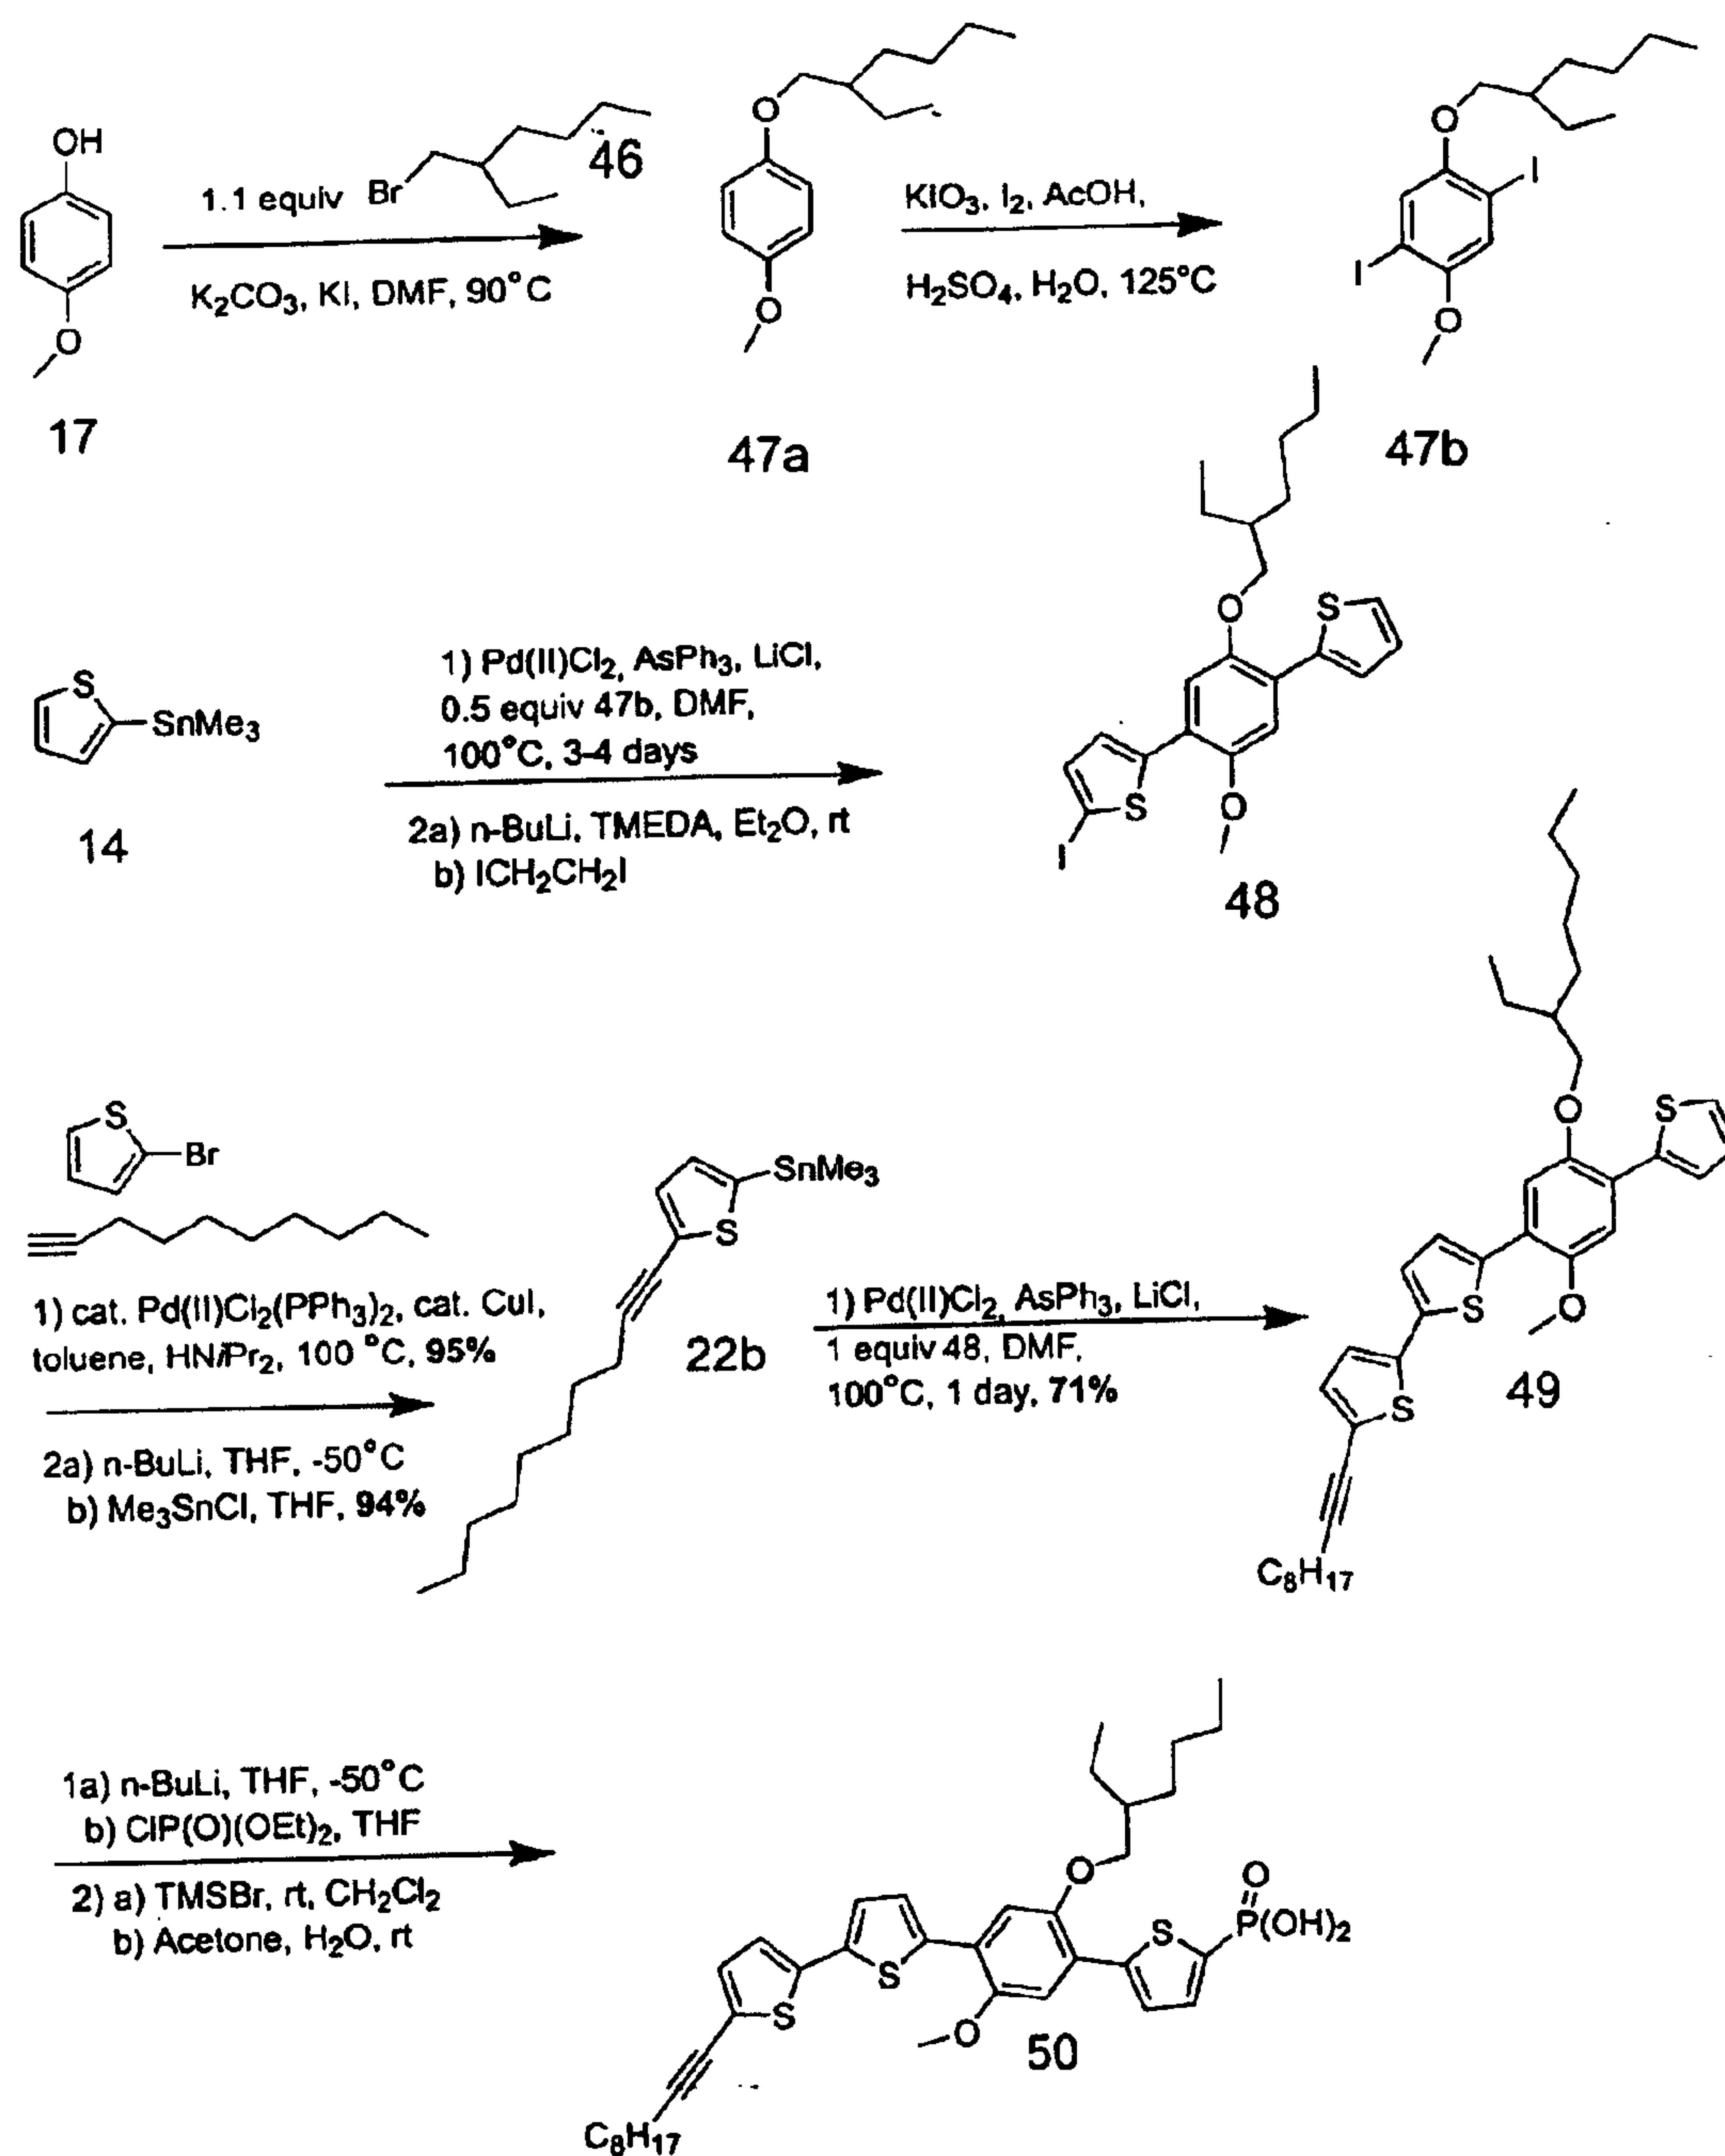 OH
O
17
1.1 equiv
Br
46
K2CO3, KI, DMF, 90°C
O
O
47a
KIO3, I2, AcOH,
H2SO4, H2O, 125°C
O
I
I
O
47b
S
SnMe3
14
1) Pd(II)Cl2, AsPh3, LiCl,
0.5 equiv 47b, DMF,
100°C, 3-4 days
2a) n-BuLi, TMEDA, Et2O, rt
b) ICH2CH2I
O
S
S
O
I
48
S
Br
1) cat. Pd(II)Cl2(PPh3)2, cat. CuI,
toluene, HNiPr2, 100 °C, 95%
2a) n-BuLi, THF, -50°C
b) Me3SnCl, THF, 94%
SnMe3
S
22b
1) Pd(II)Cl2, AsPh3, LiCl,
1 equiv 48, DMF,
100°C, 1 day, 71%
O
S
S
O
S
C8H17
49
1a) n-BuLi, THF, -50°C
b) ClP(O)(OEt)2, THF
2) a) TMSBr, rt, CH2Cl2
b) Acetone, H2O, rt
O
O
S
P(OH)2
S
S
O
C8H17
50